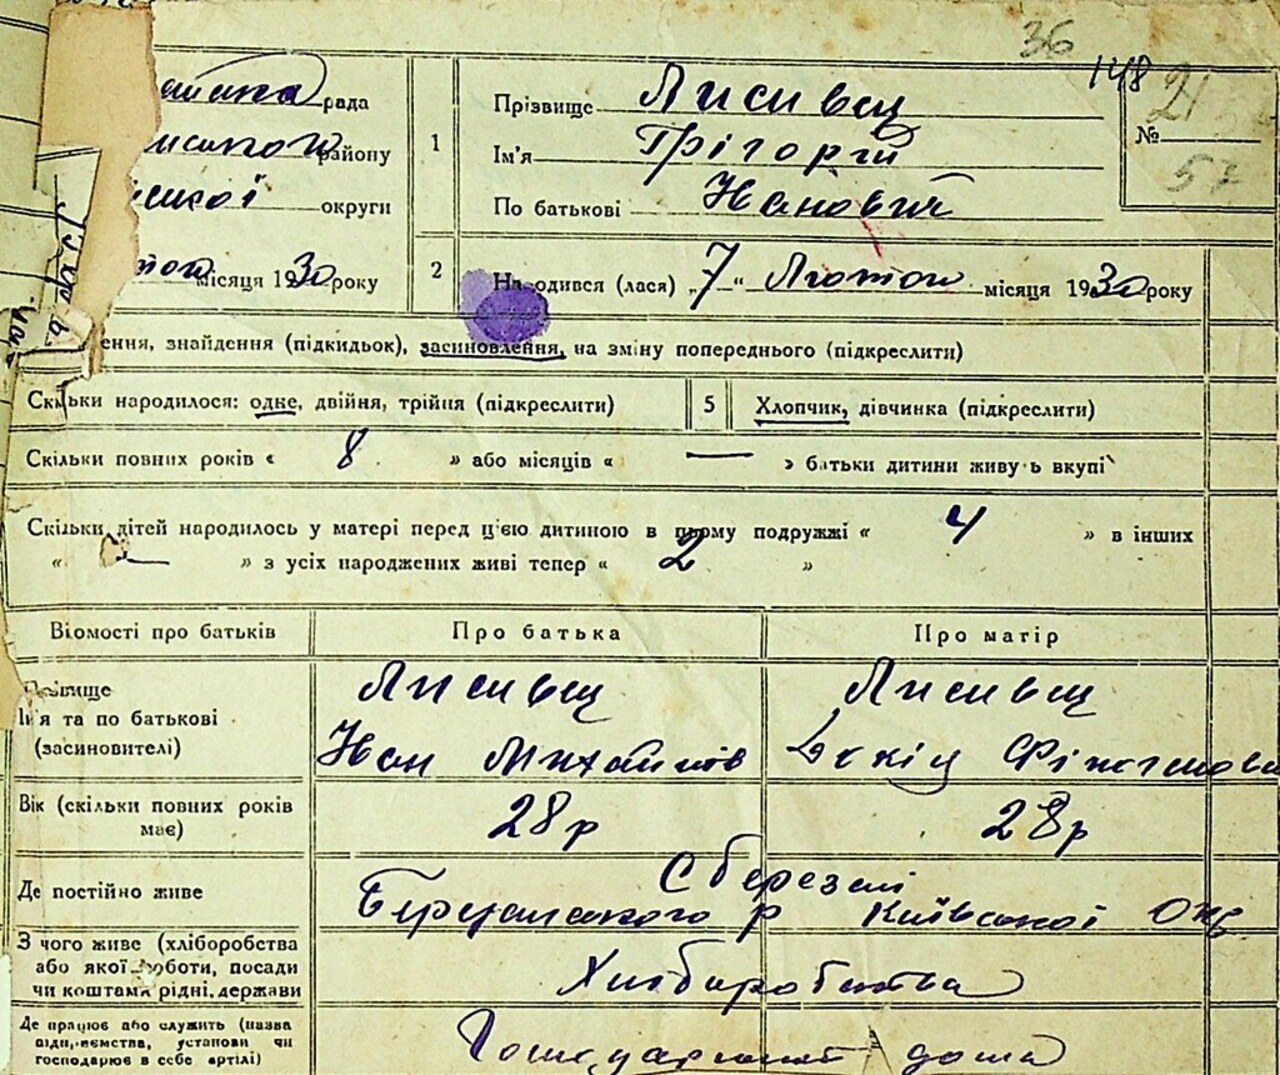 36
148
21
рада
1
Прізвище Лисивец
№
району
Ім'я Грігорій
57
округи
По батькові Іванович
місяця 1930 року
2
Народився (лася) „7“ Лютого місяця 1930 року
ення, знайдення (підкидьок), засиновлення, на зміну попереднього (підкреслити)
Скільки народилося: одне, двійня, трійня (підкреслити)
5
Хлопчик, дівчинка (підкреслити)
Скільки повних років « 8 » або місяців « — » батьки дитини живуть вкупі
Скільки дітей народилось у матері перед цією дитиною в цьому подружжі « 4 » в інших
« — » з усіх народжених живі тепер « 2 »
Відомості про батьків
Про батька
Про матір
Прізвище
Ім'я та по батькові
(засиновителі)
Лисивец
Иван Михайлов
Лисивец
Вік (скільки повних років
має)
28 р
28 р
Де постійно живе
С Березані
Березанського р Київської Окр
З чого живе (хліборобства
або якої роботи, посади
чи коштами рідні, держави
Хліборобства
Де працює або служить (назва
підприємства, установи чи
господарює в себе артілі)
дома